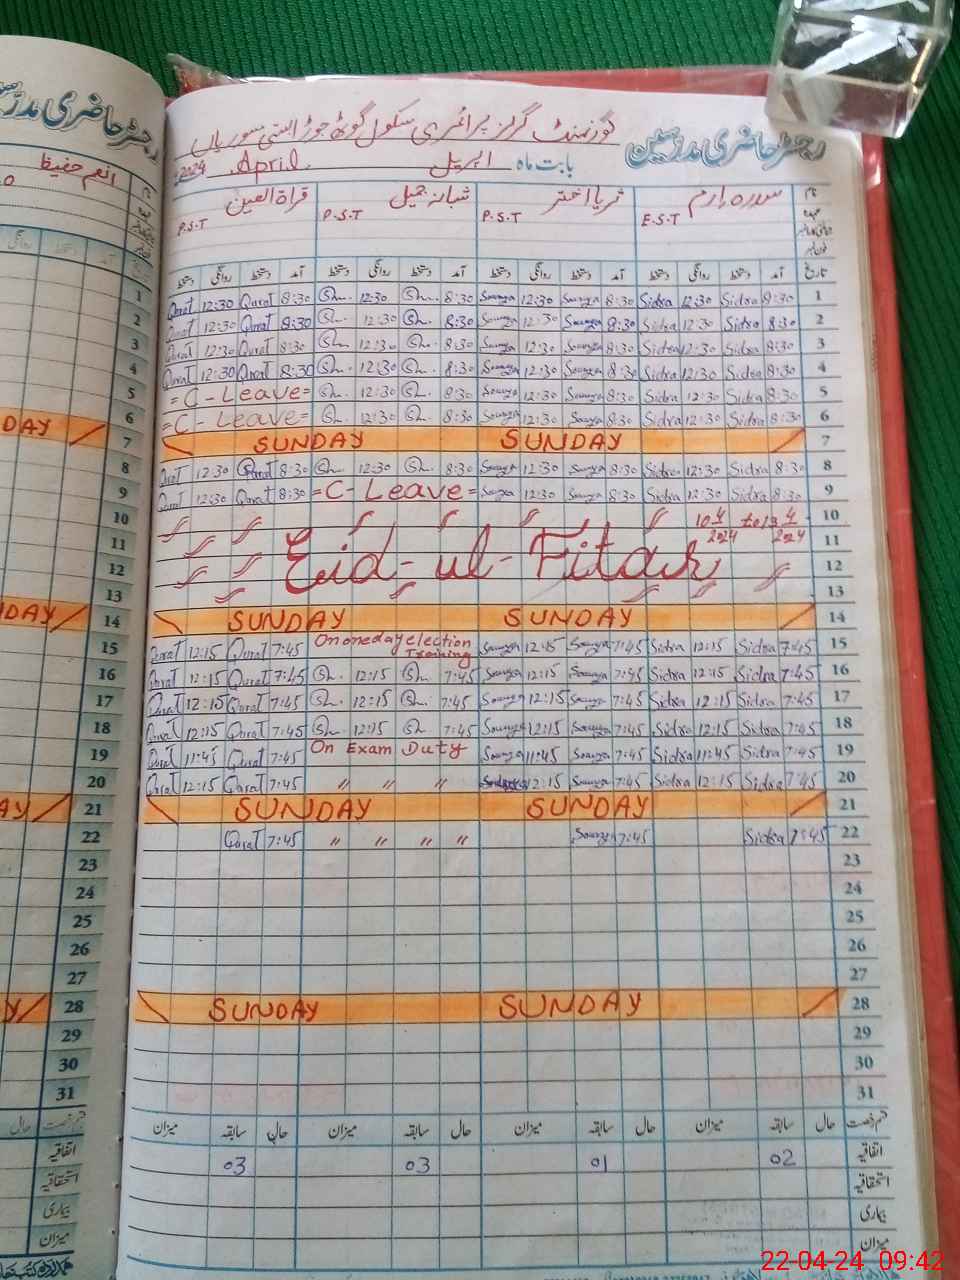 رجسٹر حاضری مدرسین
گورنمنٹ گرلز پرائمری سکول گوٹھ جوڑ
بابت ماہ اپریل April 2024
نام سدرہ ارم ثریا اختر شبانہ جمیل قراۃ العین
E.S.T P.S.T P.S.T P.S.T
تاریخ آمد دستخط روانگی دستخط آمد دستخط روانگی دستخط آمد دستخط روانگی دستخط آمد دستخط روانگی دستخط
Qurat 12:30 Qurat 8:30 Sh. 12:30 Sh. 8:30 Sourya 12:30 Sourya 8:30 Sidra 12:30 Sidra 8:30 1
Qurat 12:30 Qurat 8:30 Sh. 12:30 Sh. 8:30 Sourya 12:30 Sourya 8:30 Sidra 12:30 Sidra 8:30 2
Qurat 12:30 Qurat 8:30 Sh. 12:30 Sh. 8:30 Sourya 12:30 Sourya 8:30 Sidra 12:30 Sidra 8:30 3
Qurat 12:30 Qurat 8:30 Sh. 12:30 Sh. 8:30 Sourya 12:30 Sourya 8:30 Sidra 12:30 Sidra 8:30 4
=C-Leave= Sh. 12:30 Sh. 8:30 Sourya 12:30 Sourya 8:30 Sidra 12:30 Sidra 8:30 5
=C-Leave= Sh. 12:30 Sh. 8:30 Sourya 12:30 Sourya 8:30 Sidra 12:30 Sidra 8:30 6
SUNDAY SUNDAY 7
Qurat 12:30 Qurat 8:30 Sh. 12:30 Sh. 8:30 Sourya 12:30 Sourya 8:30 Sidra 12:30 Sidra 8:30 8
Qurat 12:30 Qurat 8:30 =C-Leave= Sourya 12:30 Sourya 8:30 Sidra 12:30 Sidra 8:30 9
10 4/2024 to 13 4/2024 10
11
Eid-ul-Fitar 12
13
SUNDAY SUNDAY 14
Qurat 12:15 Qurat 7:45 On one day election Training Sourya 12:15 Sourya 7:45 Sidra 12:15 Sidra 7:45 15
Qurat 12:15 Qurat 7:45 Sh. 12:15 Sh. 7:45 Sourya 12:15 Sourya 7:45 Sidra 12:15 Sidra 7:45 16
Qurat 12:15 Qurat 7:45 Sh. 12:15 Sh. 7:45 Sourya 12:15 Sourya 7:45 Sidra 12:15 Sidra 7:45 17
Qurat 12:15 Qurat 7:45 Sh. 12:15 Sh. 7:45 Sourya 12:15 Sourya 7:45 Sidra 12:15 Sidra 7:45 18
Qurat 11:45 Qurat 7:45 On Exam Duty Sourya 11:45 Sourya 7:45 Sidra 11:45 Sidra 7:45 19
Qurat 12:15 Qurat 7:45 " " " 12:15 Sourya 7:45 Sidra 12:15 Sidra 7:45 20
SUNDAY SUNDAY 21
Qurat 7:45 " " " " Sourya 7:45 Sidra 7:45 22
23
24
25
26
27
SUNDAY SUNDAY 28
29
30
31
قسم رخصت حال سابقہ میزان حال سابقہ میزان حال سابقہ میزان حال سابقہ میزان
اتفاقیہ 02 01 03 03
استحقاقیہ
بیماری
میزان
رجسٹر حاضری مدرسین
انعم حفیظ
22-04-24 09:42